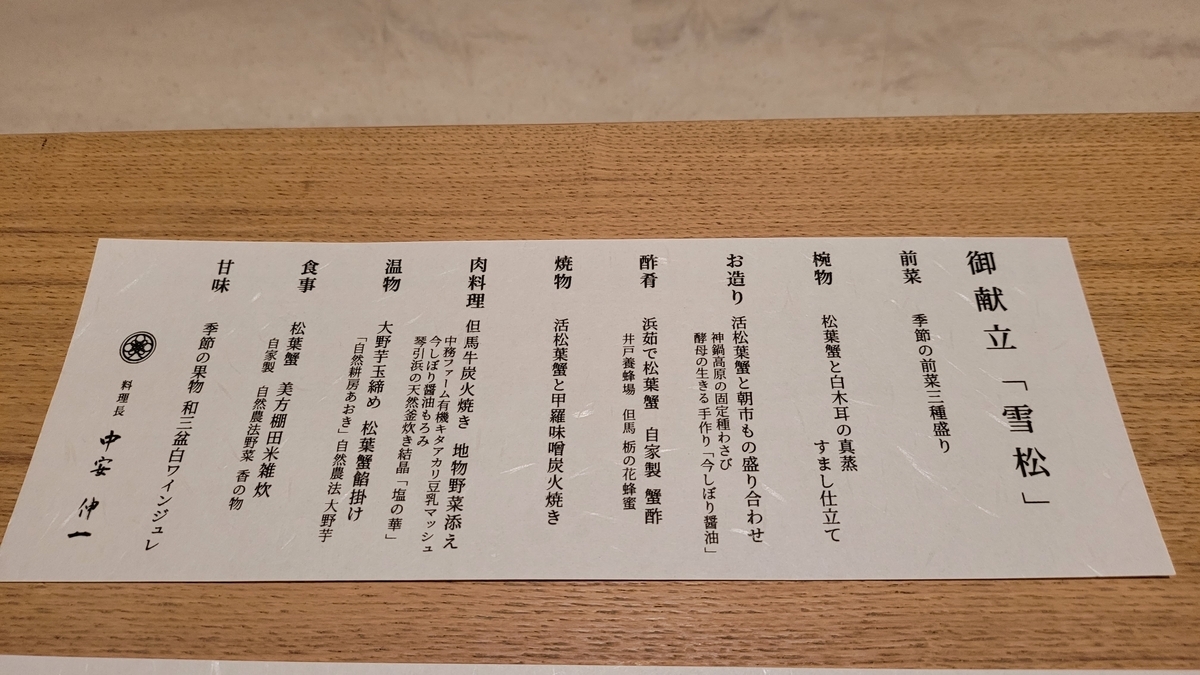 御献立「雪松」
前菜
季節の前菜三種盛り
椀物
松葉蟹と白木耳の真蒸
すまし仕立て
お造り
活松葉蟹と朝市もの盛り合わせ
神鍋高原の固定種わさび
酵母の生きる 手作り「今しぼり醤油」
酢肴
浜茹で松葉蟹 自家製 蟹酢
井戸養蜂場 但馬 栃の花蜂蜜
焼物
活松葉蟹と甲羅味噌炭火焼き
肉料理
但馬牛炭火焼き 地物野菜添え
中務ファーム有機キタアカリ豆乳マッシュ
今しぼり醤油もろみ
琴引浜の天然釜炊き結晶「塩の華」
温物
大野芋玉締め 松葉蟹餡掛け
「自然耕房あおき」自然農法 大野芋
食事
松葉蟹 美方棚田米雑炊
自家製 自然農法野菜 香の物
甘味
季節の果物 和三盆白ワインジュレ
料理長 中安 伸一